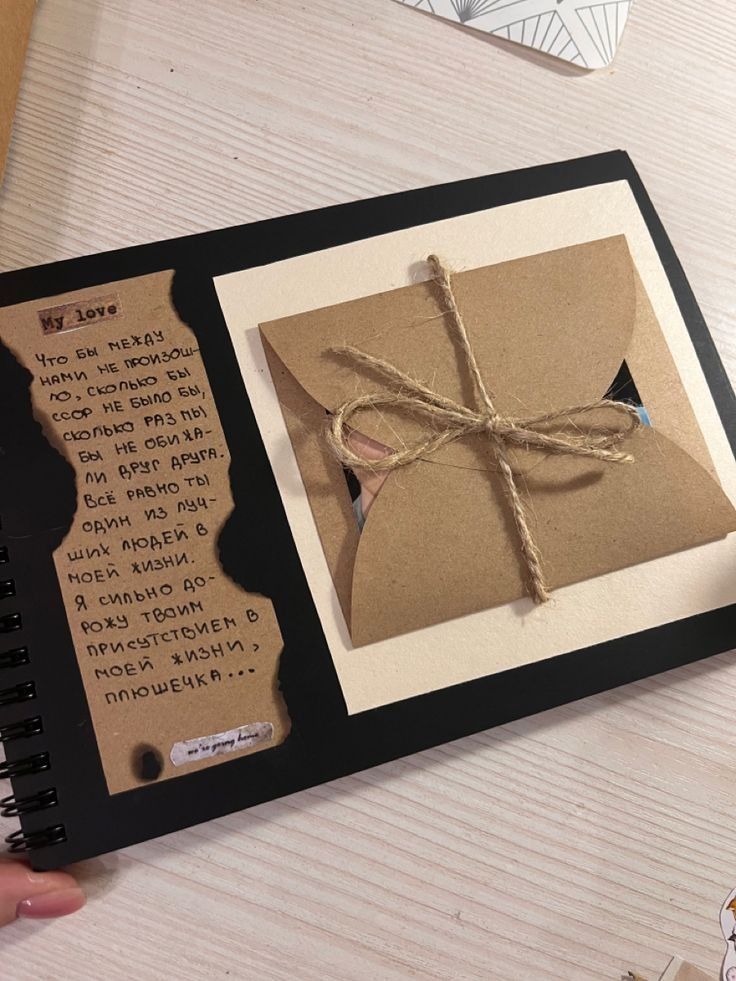 My love
Что бы между
нами не произош-
ло, сколько бы
ссор не было бы,
сколько раз мы
бы не обижа-
ли друг друга.
Всё равно ты
один из луч-
ших людей в
моей жизни.
Я сильно до-
рожу твоим
присутствием в
моей жизни,
плюшечка...
we're going home